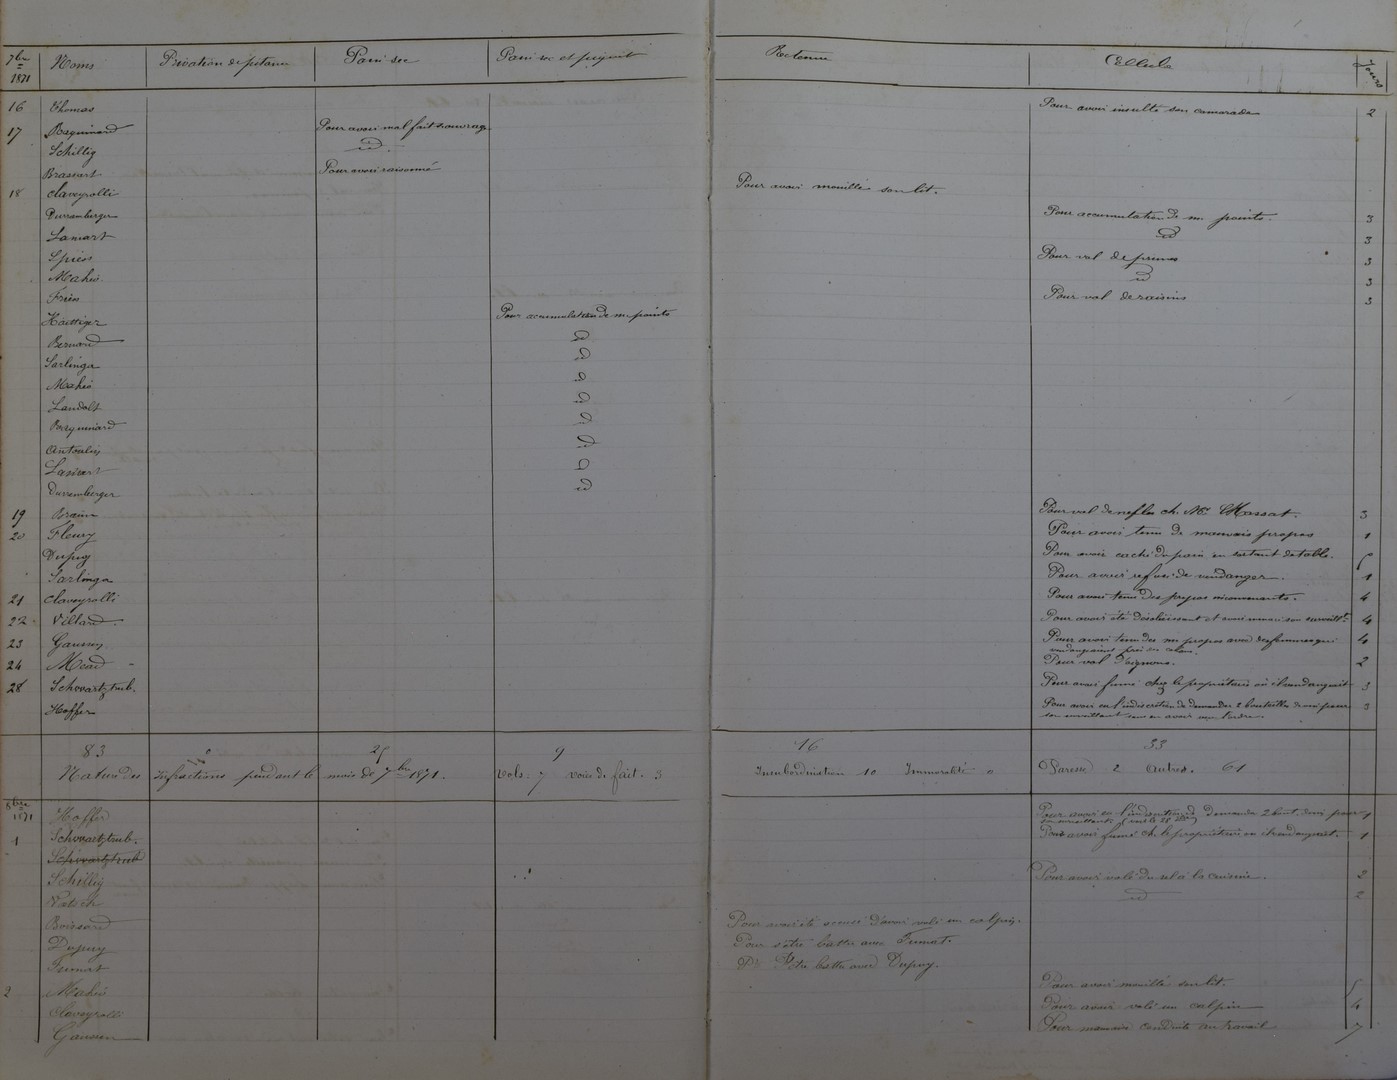 7bre 1871 Noms Privation de pitance Pain sec Pain sec et piquet Retenue Cellule Jours
16 Thomas Pour avoir insulté son camarade 2
17 Raquinard Pour avoir mal fait son ouvrage
Schillig id.
Brassart Pour avoir raisonné
18 Claveyrolli Pour avoir mouillé son lit.
Durremberger Pour accumulation de m. points. 3
Lamart id 3
Spiess Pour vol de prunes 3
Mahié id 3
Friess Pour vol de raisins 3
Haettiger Pour accumulation de m. points
Bernard id
Sarlinga id
Mahié id
Landolt id
Raquinard id
Antoalis id
Lamart id
Durremberger id
19 Braun Pour vol de nefles ch. Mr Massat. 3
20 Fleury Pour avoir tenu de mauvais propos 1
Dupuy Pour avoir caché du pain en sortant de table.
Sarlinga Pour avoir refusé de vendanger. 1
21 Claveyrolli Pour avoir tenu des propos inconvenants. 4
22 Villard. Pour avoir été désobéissant et avoir son surveillt 4
23 Gaussen Pour avoir tenu des m. propos avec des femmes qui 4
vendangeaient
24 Méad Pour vol d'oignons. 2
28 Schwartztrub. Pour avoir fumé chez le propriétaire où il vendangeait 3
Hoffer Pour avoir eu l'indiscrétion de demander 2 bouteilles de vin pour 3
son surveillant sans en avoir reçu l'ordre
83 25 9 16 33
Nature des infractions pendant le mois de 7bre 1871. Vols: 7 voies de fait. 3 Insubordination 10 Immoralité 0 Paresse 2 Autres. 61
8bre 1871 Hoffer Pour avoir eu l'indiscrétion de demander 2 bout. de vin pour 1
1 Schwartztrub. Pour avoir fumé ch. le propriétaire où il vendangeait. 1
Schwartztrub
Schillig Pour avoir volé du sel à la cuisine. 2
id 2
Boissard Pour avoir été accusé d'avoir volé un calpin.
Dupuy Pour s'être battu avec Fumat.
Fumat Pr s'être battu avec Dupuy.
2 Mahié Pour avoir mouillé son lit. 5
Claveyrolli Pour avoir volé un calpin 4
Gaussen Pour mauvaise conduite au travail 7